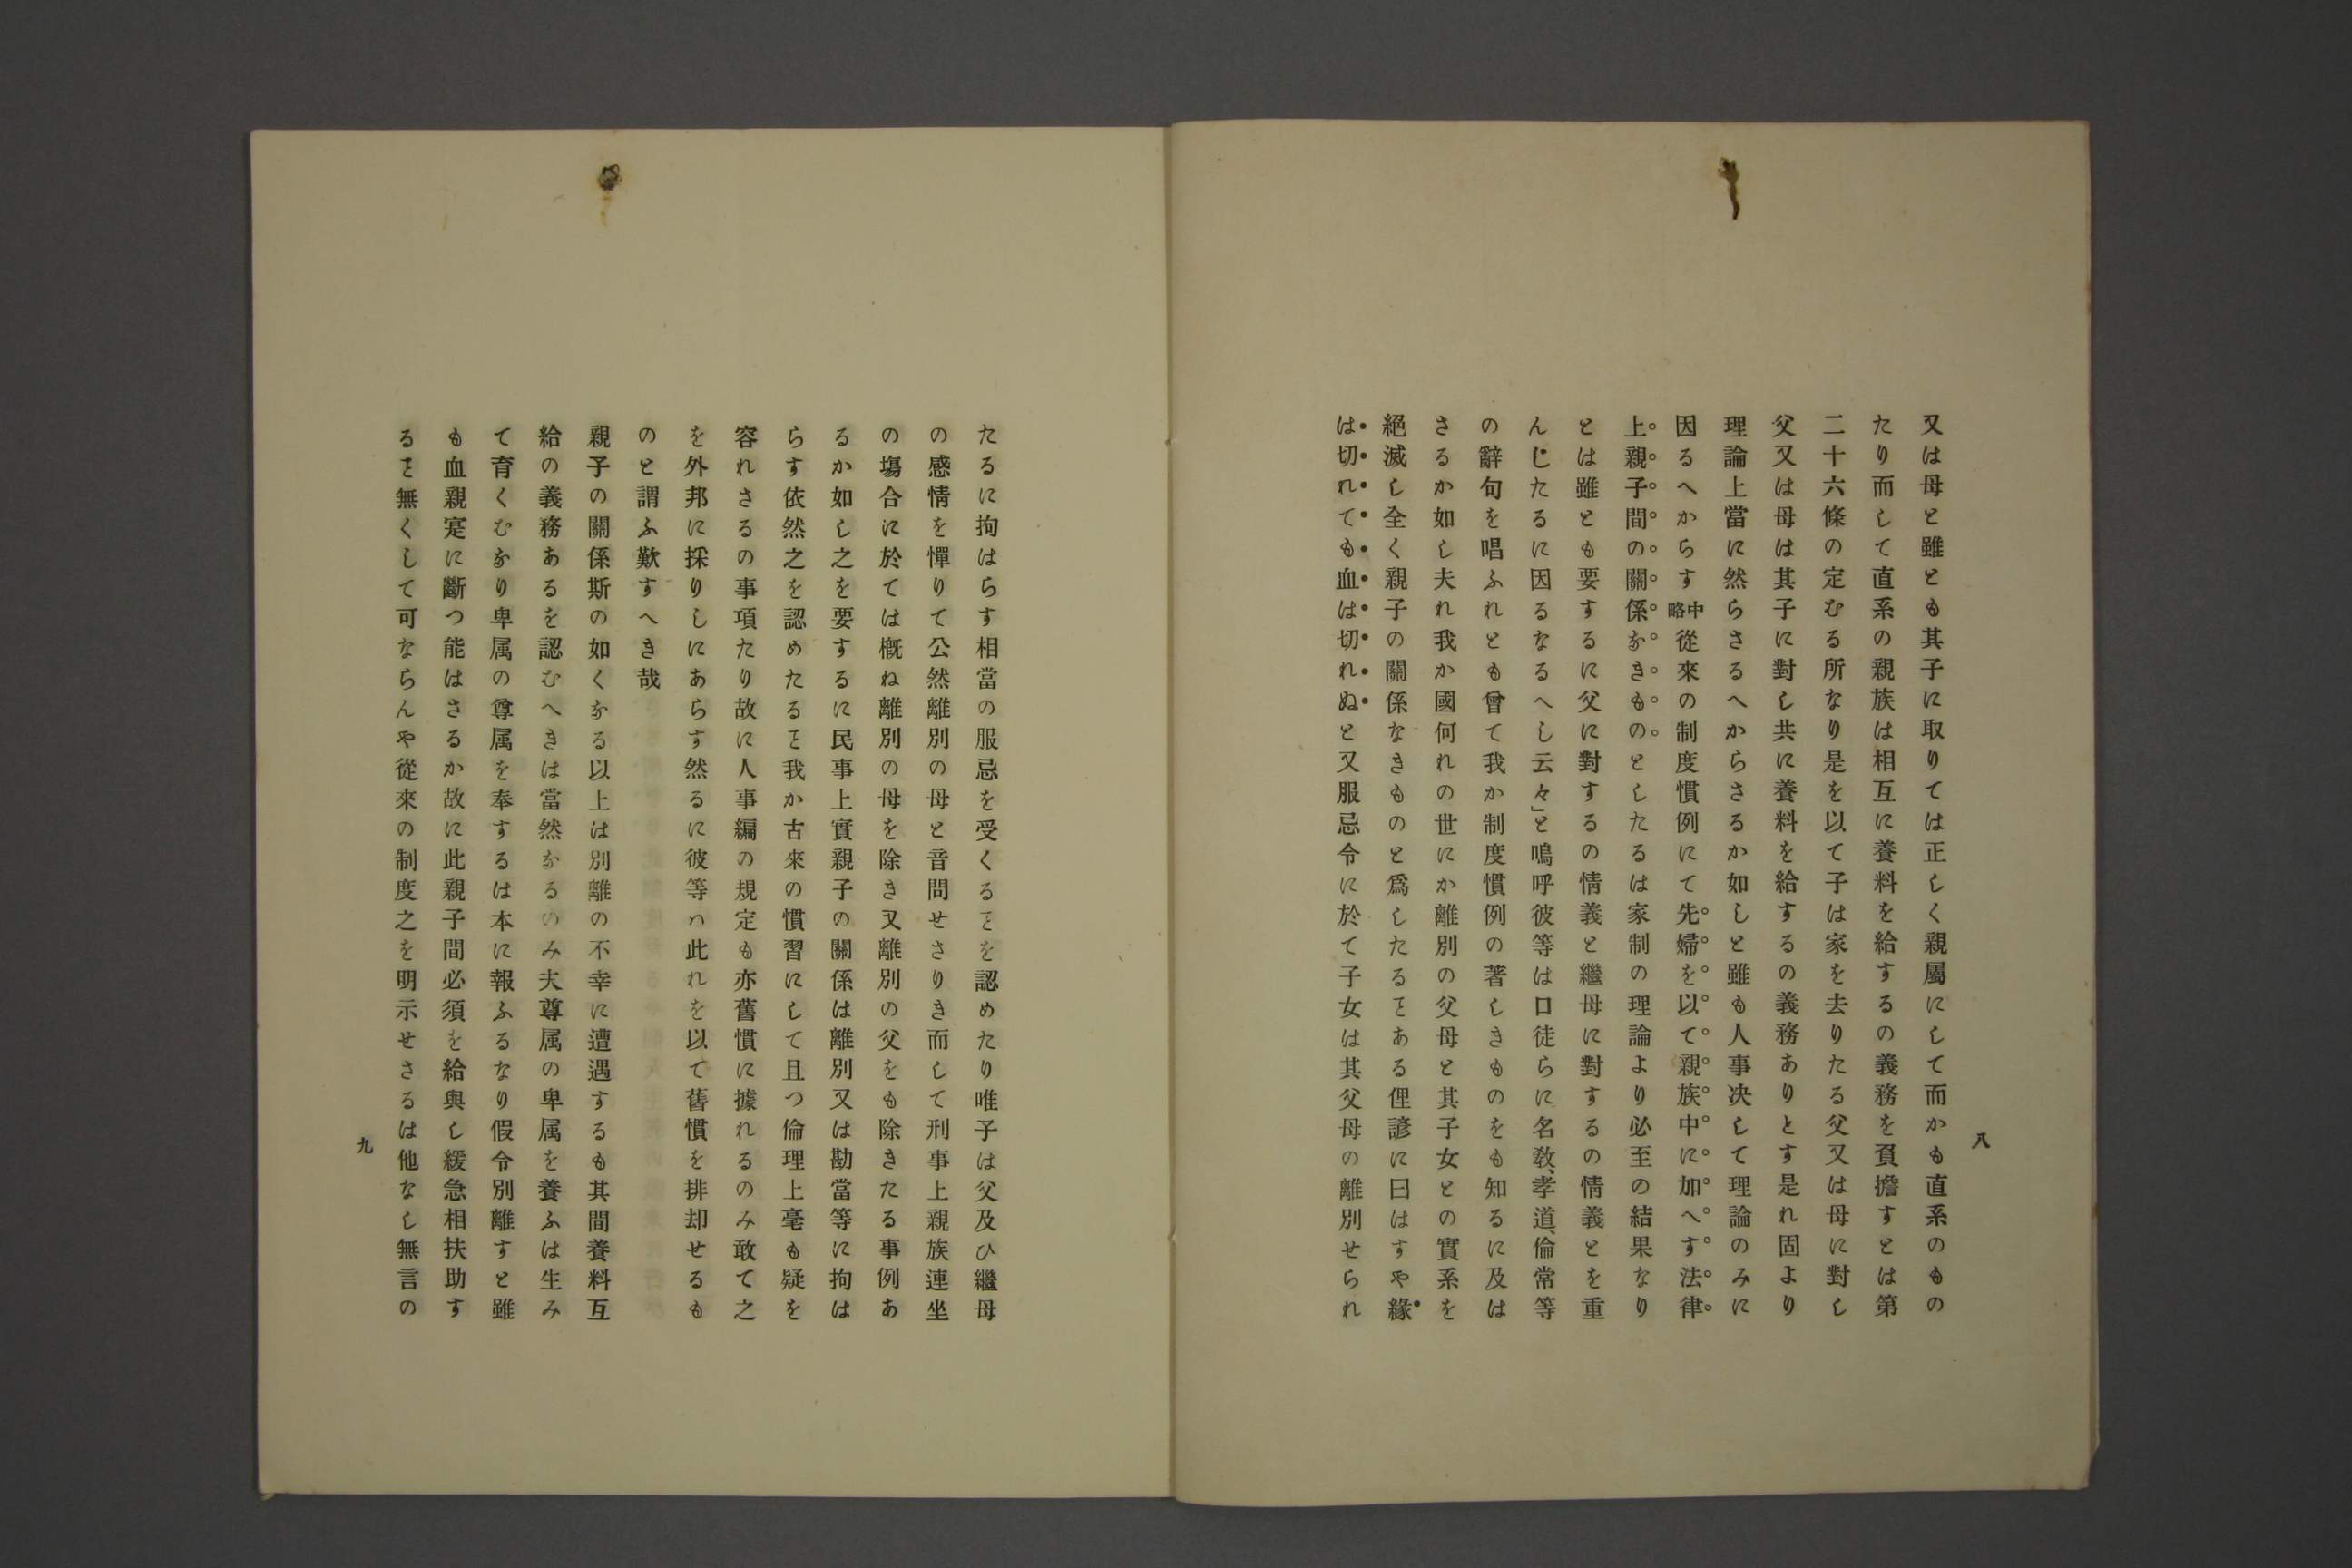 八
又は母と雖とも其子に取りては正しく親屬にして而かも直系のもの
たり而して直系の親族は相互に養料を給するの義務を負擔すとは第
二十六條の定むる所なり是を以て子は家を去りたる父又は母に對し
父又は母は其子に對し共に養料を給するの義務ありとす是れ固より
理論上當に然らさるへからさるか如しと雖も人事决して理論のみに
因るへからす中略從來の制度慣例にて先婦を以て親族中に加へす法律
上親子間の關係なきものとしたるは家制の理論より必至の結果なり
とは雖とも要するに父に對するの情義と繼母に對するの情義とを重
んじたるに因るなるへし云々」と嗚呼彼等は口徒らに名敎、孝道、倫常等
の辭句を唱ふれとも曾て我か制度慣例の著しきものをも知るに及は
さるか如し夫れ我か國何れの世にか離別の父母と其子女との實系を
絕滅し全く親子の關係なきものと爲したるヿある俚諺に曰はすや緣
は切れても血は切れぬと又服忌令に於て子女は其父母の離別せられ
たるに拘はらす相當の服忌を受くるヿを認めたり唯子は父及ひ繼母
の感情を憚りて公然離別の母と音問せさりき而して刑事上親族連坐
の塲合に於ては槪ね離別の母を除き又離別の父をも除きたる事例あ
るか如し之を要するに民事上實親子の關係は離別又は勘當等に拘は
らす依然之を認めたるヿ我か古來の慣習にして且つ倫理上毫も疑を
容れさるの事項たり故に人事編の規定も亦舊慣に據れるのみ敢て之
を外邦に採りしにあらす然るに彼等ハ此れを以て舊慣を排却せるも
のと謂ふ歎すへき哉
親子の關係斯の如くなる以上は別離の不幸に遭遇するも其間養料互
給の義務あるを認むへきは當然なるのみ夫尊属の卑属を養ふは生み
て育くむなり卑属の尊属を奉するは本に報ふるなり假令別離すと雖
も血親寔に斷つ能はさるか故に此親子間必須を給與し緩急相扶助す
るヿ無くして可ならんや從來の制度之を明示せさるは他なし無言の
九